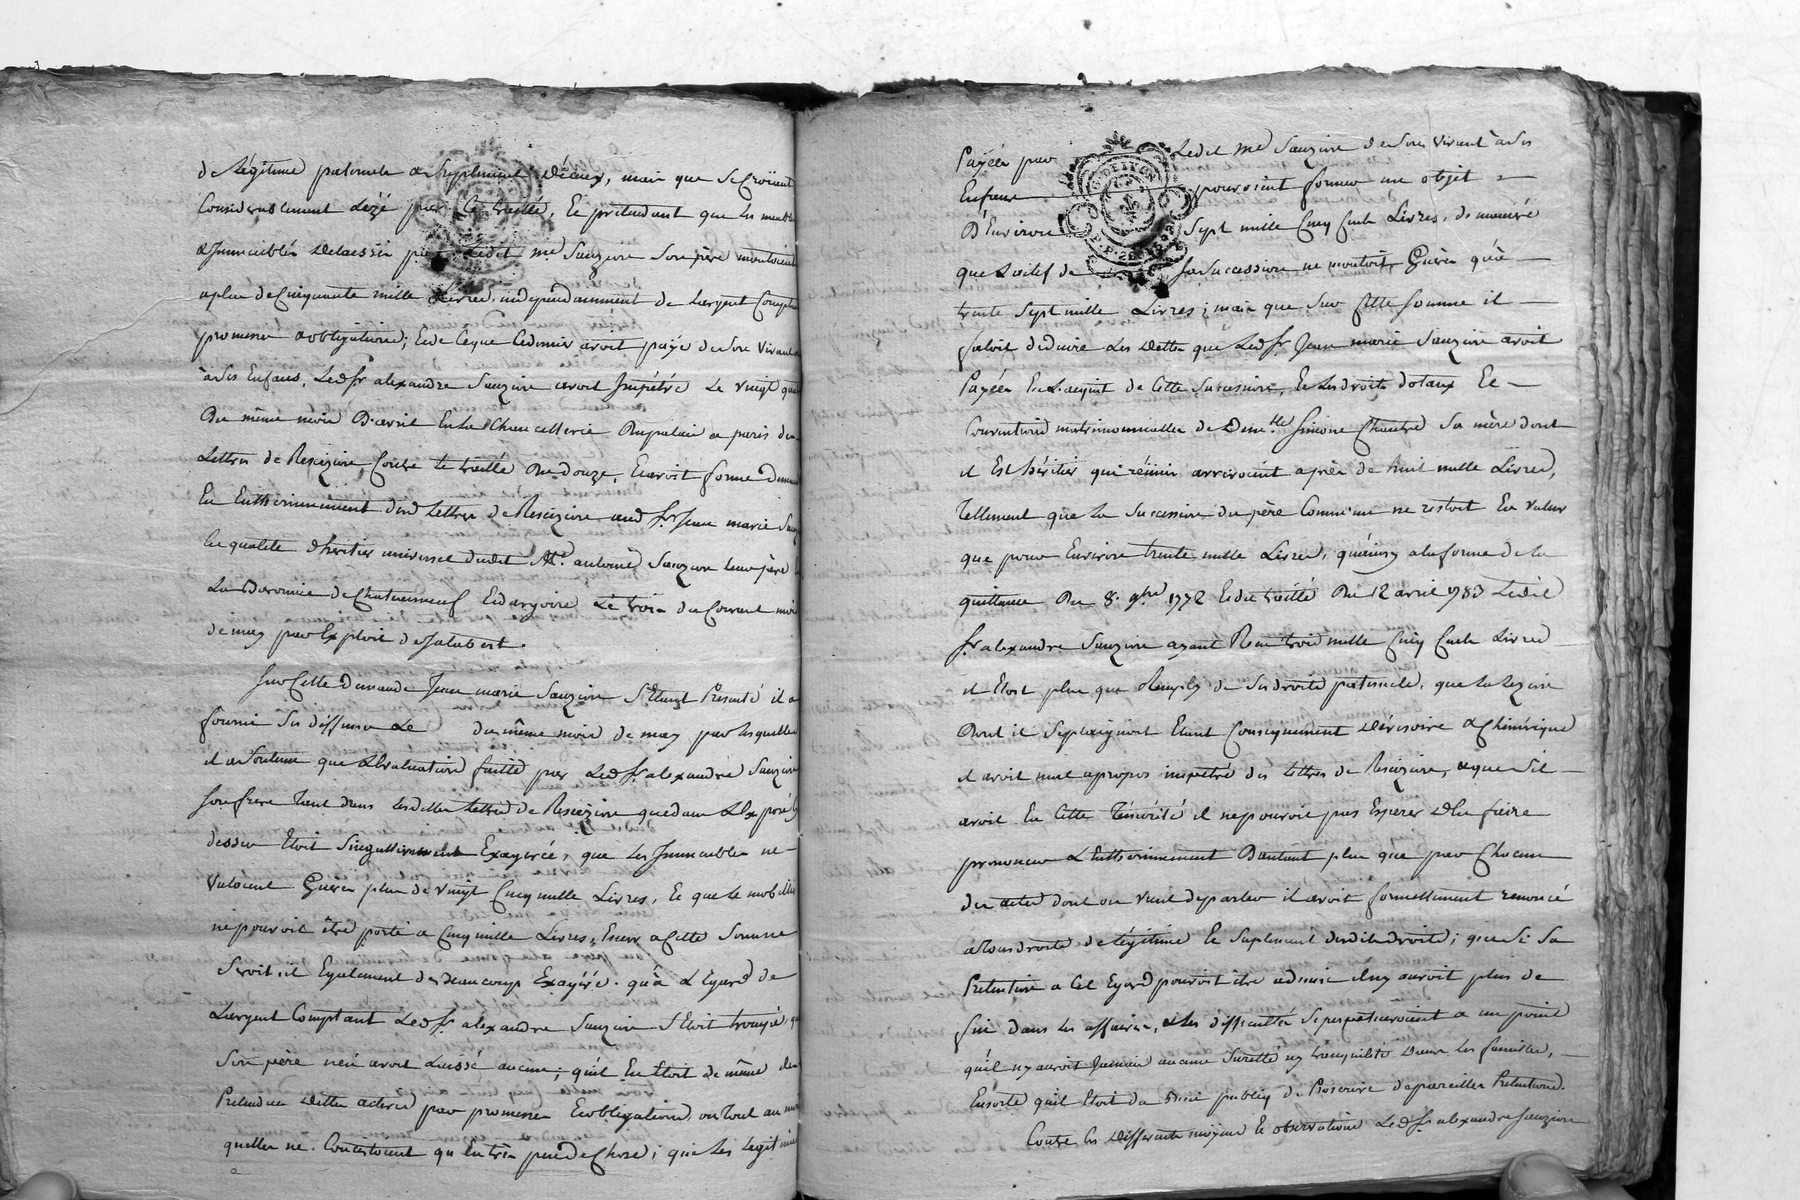 de légitime paternelle & suplement d'iceux, mais que se croiiant
Considerablement lézé par ce traitté, Et pretendant que les meubles
& Immeubles delaissés par Ledit me Sauzion son père montoient
a plus de Cinquante mille Livres, independamment de Largent Comptant
promesses & obligations; Et de ce que ce dernier avoit payé de son vivant
à ses Enfans, Led. sr alexandre Sauzion avoit Impétré Le vingt
Du même mois D'avril En La Chancellerie Du palais a paris des
Lettres de Rescizion Contre le traitté Du douze, Et avoit formé demande
En Enthérinnement desd. Lettres de Rescizion aud. Sr Jean marie
En qualité d'heritier universel dudit Me. antoine Sauzion leur père
La Baronnie de Chateauneuf Et dargoire Le trois du Courant mois
de may par Exploit de Jalabert.
Sur Cette demande Jean marie Sauzion S'Etant Presenté il a
fourni ses deffenses Le du même mois de may par lesquelles
il a soutenu que L'Evaluation faitte par Led. sr alexandre Sauzion
son frere tant dans lesdittes Lettres de Rescizion que dans L'Exposé
dessus Etoit Singulierement Exagerée, que les Immeubles ne
valoient Guères plus de vingt Cinq mille Livres, Et que le mobilier
ne pouvoit être porté a Cinq mille Livres, Encor a Cette Somme
Seroit il Egalement de beaucoup Exagéré. qu'à L'Egard de
L'argent Comptant Led. sr alexandre Sauzion S'Etoit trompé,
Son père n'en avoit Laissé aucun; qu'il En Etoit de même des
Pretendues dettes actives par promesses Et obligations ou tout au
quelles ne Consistoient qu'En très peu de Chose; que les legitimes
Payées par Ledit Me Sauzion de son vivant à ses
Enfans pouvoient former un objet
D'Environ Sept mille Cinq Cents Livres, de manière
que L'actif de sa Succession ne montoit Guères qu'à
trente Sept mille Livres; mais que sur Cette somme il
falloit déduire Les dettes que Led. sr Jean marie Sauzion avoit
Payées En L'acquit de Cette Succession, Et les droits dotaux Et
Conventions matrimonialles de Demlle Simone Chautre Sa mère dont
il Est héritier qui réünis arrivoient a près de huit mille Livres,
Tellement que la Succession du père Commun ne restoit En valeur
que pour Environ trente mille Livres, qu'ainsy a la forme de la
quittance Du 8. 9bre 1772 Et du traitté Du 12 avril 1783 Ledit
Sr alexandre Sauzion ayant Reçu trois mille Cinq Cents Livres
il Etoit plus que Remply de ses droits paternels, que la lezion
Dont il Se plaignoit Etant Conseqüemment dérisoire & Chimérique
il avoit mal apropos impetré des Lettres de Rescizion, & que S'il
avoit Eu Cette Témérité il ne pouvoit pas Esperer d'En faire
prononcer L'Enthérinnement D'autant plus que par Chacun
des actes dont on vient de parler il avoit formellement renoncé
a tous droits de légitime Et Suplement desdits droits; que Si Sa
Pretention a Cet Egard pouvoit être admise il n'y auroit plus de
fin dans les affaires, & les difficultés Se perpetueroient a un point
qu'il n'y auroit Jamais aucune Sureté ny tranquilité Dans les familles,
Ensorte qu'il Etoit du bien publiq de Proscrire de pareilles Pretentions.
Contre les differents moÿens Et observations Led. sr alexandre Sauzion